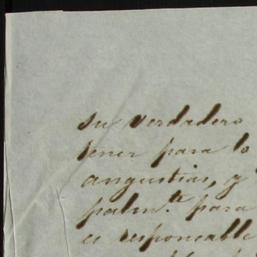 su verdadero
tener para lo
angustias, y
palm.te para
es responsable